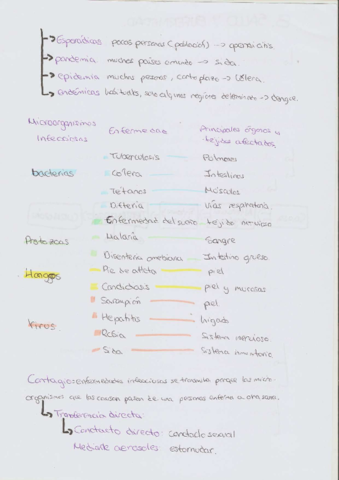 Esporádicas pocas personas (población) → apendicitis.
pandemia muchos países o mundo → Sida.
epidemia muchas personas, corto plazo → Cólera.
endémicas habituales, sobre algunas regiones determinada → Dengue.
Microorganismos Infecciosos Enfermedad Principales órganos u tejidos afectados
Tuberculosis Pulmones
bacterias Cólera Intestinos
Tétanos Músculos
Difteria Vías respiratoria
Enfermedad del sueño tejido nervioso
Protozoos Malaria Sangre
Disentería amebiana Intestino grueso
Hongos Pie de atleta piel
Candidiasis piel y mucosas
Sarampión piel
Virus Hepatitis hígado
Rabia Sistema nervioso
Sida Sistema inmunitario.
Contagio: enfermedades infecciosas se transmite porque los micro-
organismos que los causan pasan de una persona enferma a otra sana.
Transferencia directa
Contacto directo: contacto sexual
Mediante aerosoles estornudar.